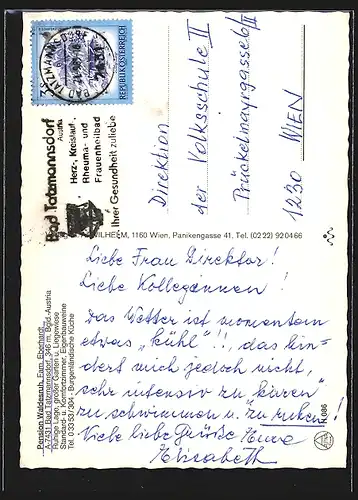 REPUBLIK ÖSTERREICH
BAD TATZMANNSDORF
Bad Tatzmannsdorf
Austria
Herz-, Kreislauf,
Rheuma- und
Frauenheilbad
Ihrer Gesundheit zuliebe
Direktion
der Volksschule II
Prückelmayrgasse 6/III
1230 WIEN
WILHELM, 1160 Wien, Panikengasse 41, Tel. (02 22) 92 04 66
Pension Waldesruh, Fam. Eberhardt
A-7431 Bad Tatzmannsdorf, 346 m, Bgld.-Austria
Ruhige Lage, großer Garten u. Liegewiese
Standard- u. Komfortzimmer, Eigenbauweine
Tel. 0 33 53/304 - Burgenländische Küche
Liebe Frau Direktor!
Liebe Kolleginnen!
Das Wetter ist momentan
etwas „kühl“!!, das hin-
dert mich jedoch nicht,
sehr intensiv zu kuren
zu schwimmen u. zu ruhen!
Viele liebe Grüße Eure
Elisabeth
R 086